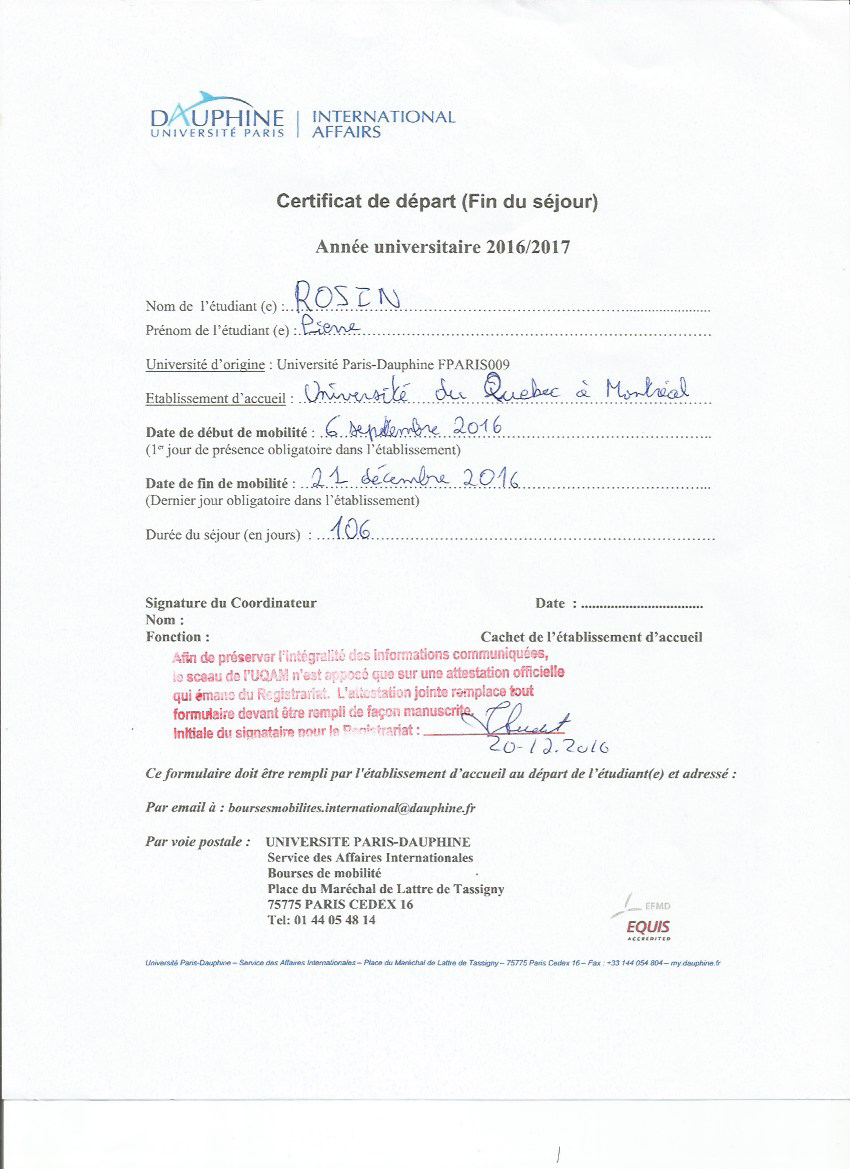 DAUPHINE
UNIVERSITÉ PARIS
INTERNATIONAL
AFFAIRS
Certificat de départ (Fin du séjour)
Année universitaire 2016/2017
Nom de l'étudiant (e) : ROSIN
Prénom de l'étudiant (e) : Pierre
Université d'origine : Université Paris-Dauphine FPARIS009
Etablissement d'accueil : Université du Quebec à Montréal
Date de début de mobilité : 6 septembre 2016
(1er jour de présence obligatoire dans l'établissement)
Date de fin de mobilité : 21 décembre 2016
(Dernier jour obligatoire dans l'établissement)
Durée du séjour (en jours) : 106
Signature du Coordinateur Date : ................................
Nom :
Fonction : Cachet de l'établissement d'accueil
Afin de préserver l'intégralité des informations communiquées,
le sceau de l'UQAM n'est apposé que sur une attestation officielle
qui émane du Registrariat. L'attestation jointe remplace tout
formulaire devant être rempli de façon manuscrite.
Initiale du signataire pour le Registrariat :
20-12.2016
Ce formulaire doit être rempli par l'établissement d'accueil au départ de l'étudiant(e) et adressé :
Par email à : boursesmobilites.international@dauphine.fr
Par voie postale : UNIVERSITE PARIS-DAUPHINE
Service des Affaires Internationales
Bourses de mobilité
Place du Maréchal de Lattre de Tassigny
75775 PARIS CEDEX 16
Tel: 01 44 05 48 14
EFMD
EQUIS
ACCREDITED
Université Paris-Dauphine – Service des Affaires Internationales – Place du Maréchal de Lattre de Tassigny – 75775 Paris Cedex 16 – Fax : +33 144 054 804 – my.dauphine.fr